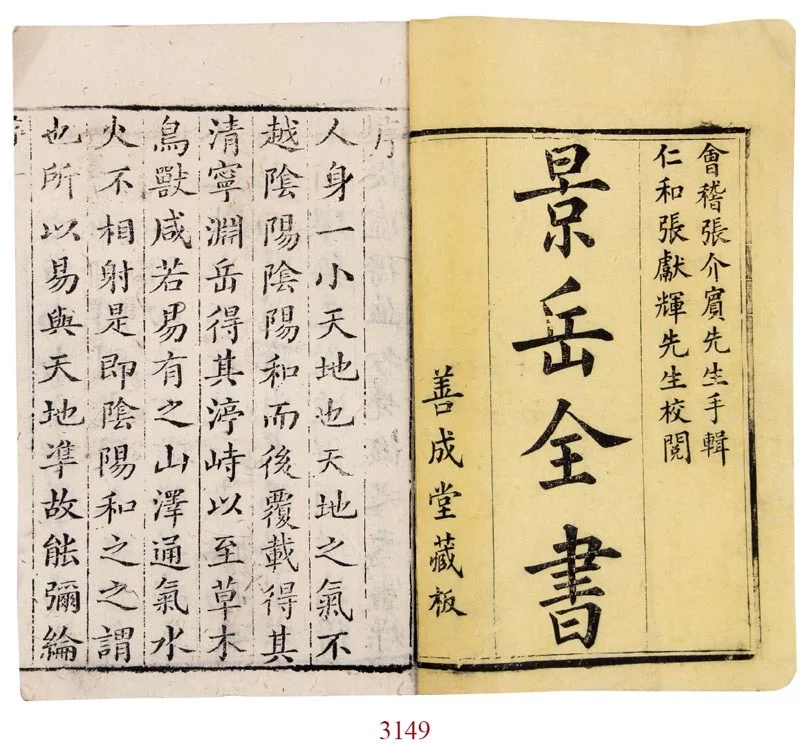 會稽張介賓先生手輯
仁和張獻輝先生校閱
景岳全書
善成堂藏板
序
人身一小天地也天地之氣不
越陰陽陰陽和而後覆載得其
清寧淵岳得其渟峙以至草木
鳥獸咸若易有之山澤通氣水
火不相射是即陰陽和之之謂
也所以易與天地凖故能彌綸
3149